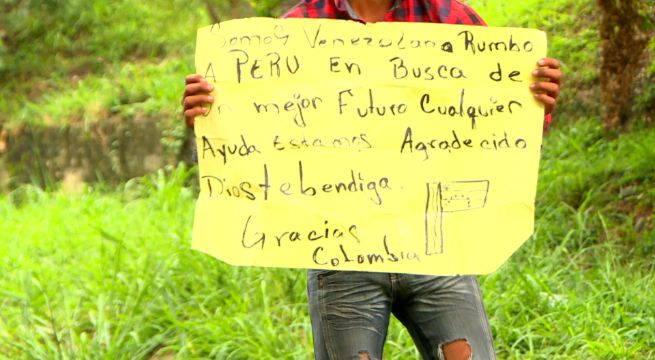 Somos Venezolano Rumbo
A PERU En Busca de
un mejor Futuro Cualquier
Ayuda Estamos Agradecido
Dios te bendiga.
Gracias
Colombia